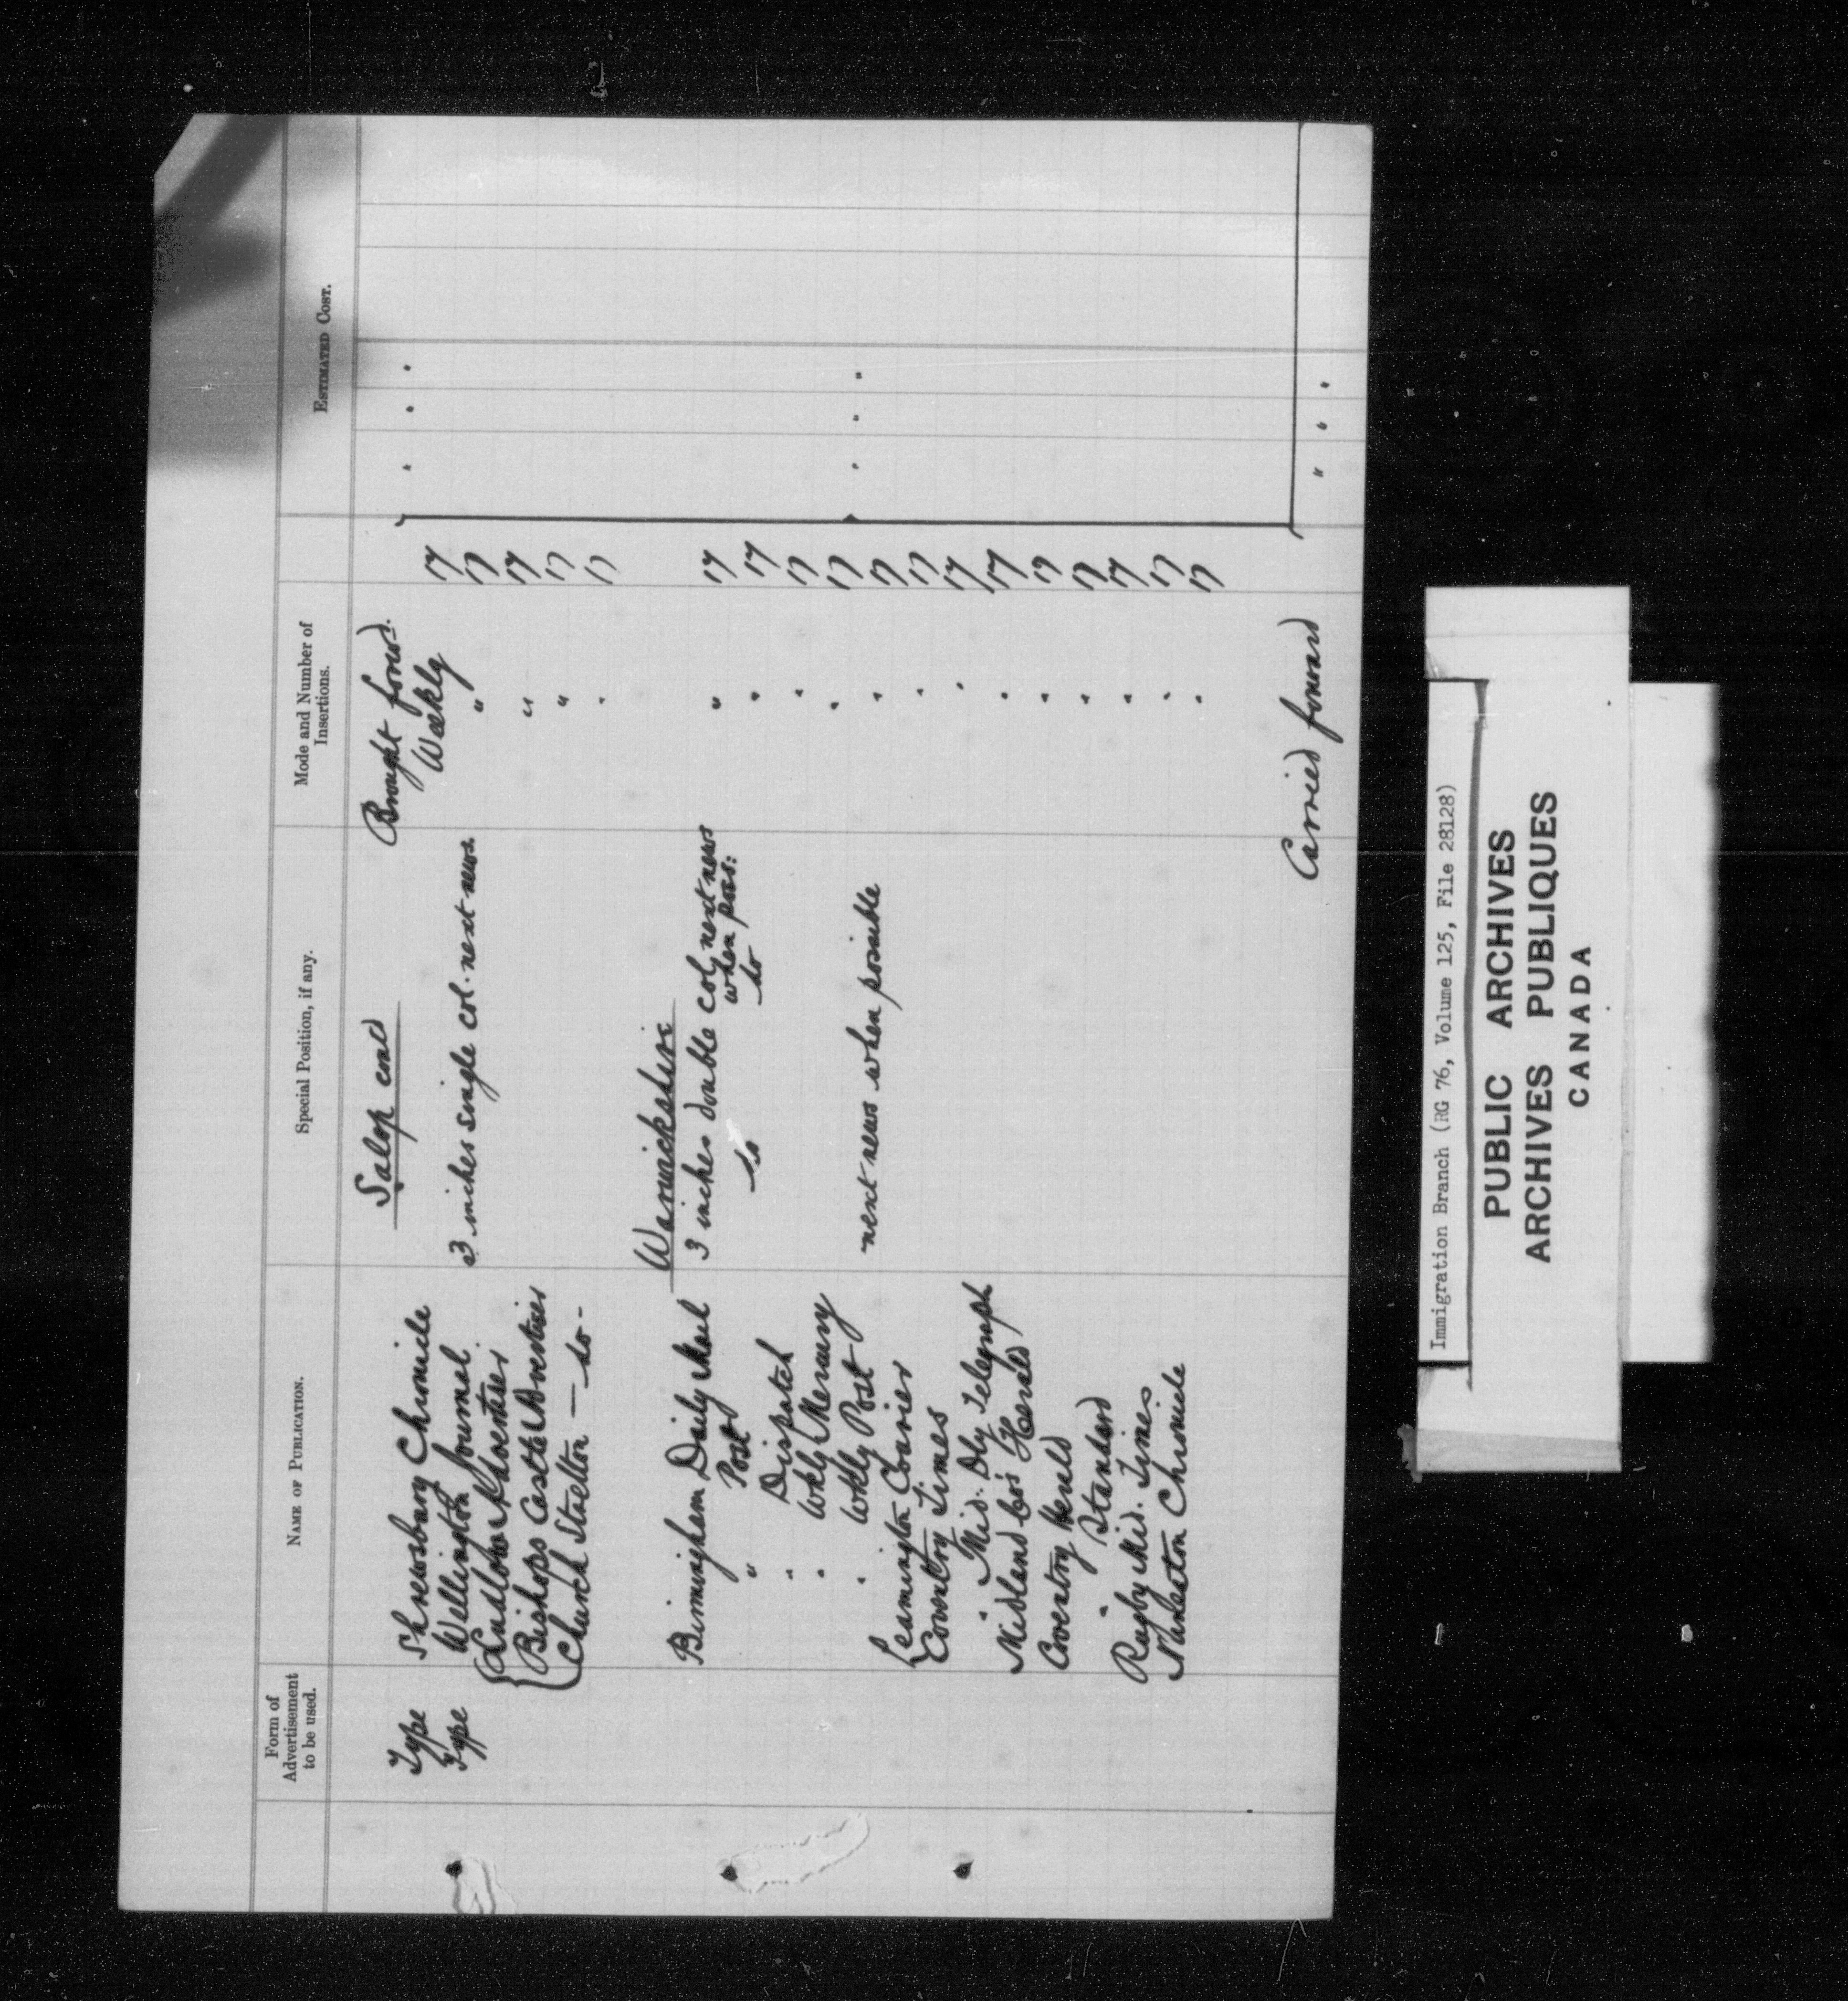 Form of Advertisement to be used. NAME OF PUBLICATION. Special Position, if any. Mode and Number of Insertions. ESTIMATED COST.
Salop cond Brought forwd. " " "
Type Shrewsbury Chronicle Weekly 17
Type Wellington Journal 3 inches single col. next news. " 17
{ Ludlow Advertiser " 17
{ Bishops Castle Advertiser " 17
( Church Stretton — do - " 17
Warwickshire
Birmingham Daily Mail 3 inches double col. next news when poss: " 17
" Post do do " 17
" Dispatch " 17
" Wkly Mercury " 17
" Wkly Post next news when possible " 17
{ Leamington Courier " 17
Coventry Times " 17
" Mid. Dly Telegraph " 17
Midland Co's Herald " 17
Coventry Herald " 17
" Standard " 17
Rugby Mid. Times " 17
Nuneaton Chronicle " 17
Carried forward " " "
Immigration Branch (RG 76, Volume 125, File 28128)
PUBLIC ARCHIVES
ARCHIVES PUBLIQUES
CANADA